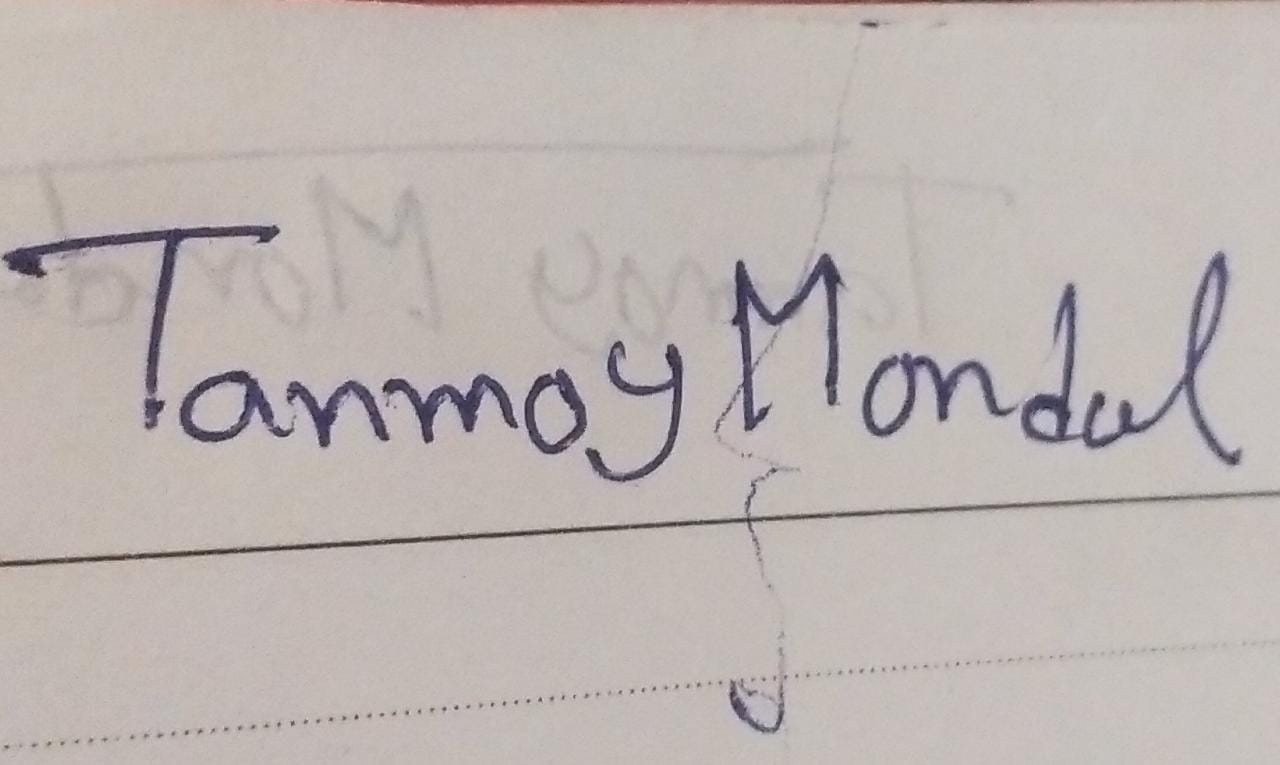 Tanmoy Mondal